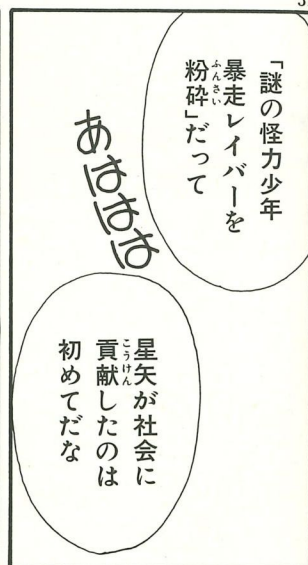 「謎の怪力少年
暴走レイバーを
粉砕」だって
あはははは
星矢が社会に
貢献したのは
初めてだな